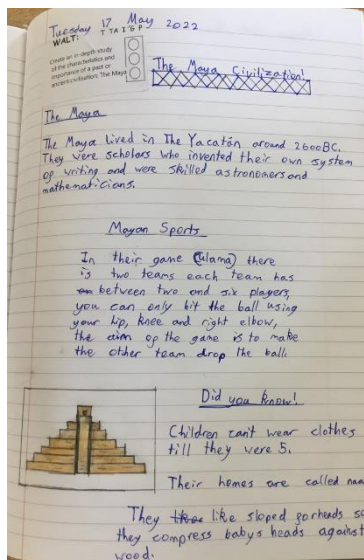 Tuesday 17 May 2022
WALT: T TA I G P
Create an in-depth study
of the characteristics and
importance of a past or
ancient civilisation: The Maya
The Maya Civilization!
The Maya
The Maya lived in The Yacatán around 2600BC.
They were scholars who invented their own system
of writing and were skilled astronomers and
mathematicians.
Mayan Sports
In their game (ulama) there
is two teams each team has
between two and six players,
you can only hit the ball using
your hip, knee and right elbow,
the aim of the game is to make
the other team drop the ball.
Did you know!
Children can't wear clothes
till they were 5.
Their homes are called
They like sloped forheads so
they compress babys heads against
wood.